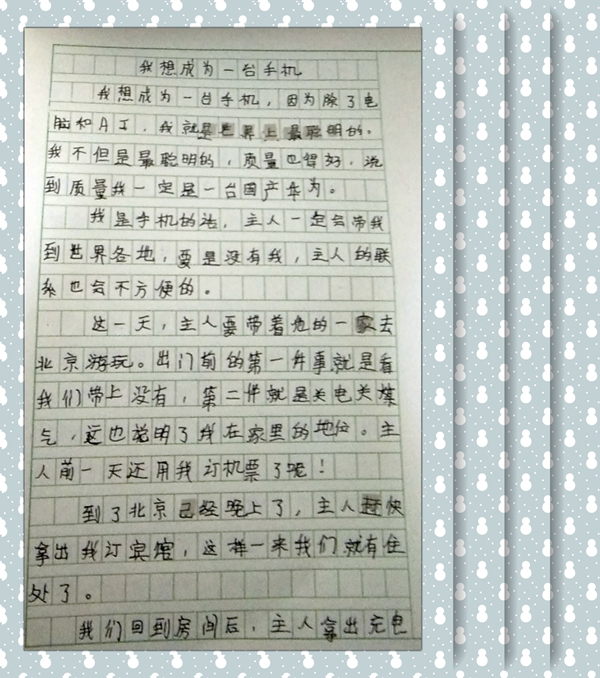 我想成为一台手机
我想成为一台手机，因为除了电
脑和AI，我就是世界上最聪明的。
我不但是最聪明的，质量也得好，说
到质量我一定是一台国产华为。
我是手机的话，主人一定会带我
到世界各地，要是没有我，主人的联
系也会不方便的。
这一天，主人要带着他的一家去
北京游玩。出门前的第一件事就是看
我们带上没有，第二件就是关电关煤
气，这也说明了我在家里的地位。主
人前一天还用我订机票了呢！
到了北京已经晚上了，主人赶快
拿出我订宾馆，这样一来我们就有住
处了。
我们回到房间后，主人拿出充电